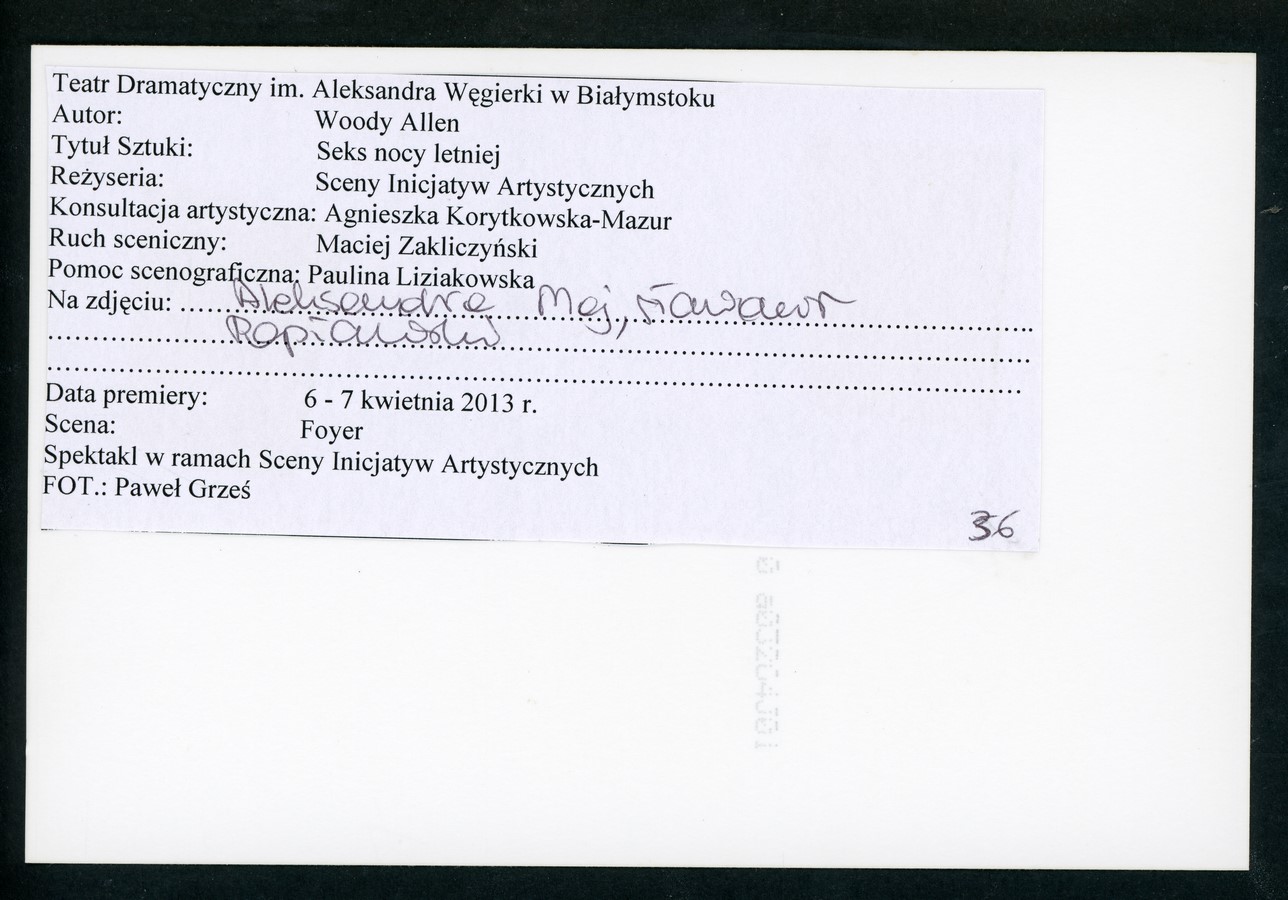 Teatr Dramatyczny im. Aleksandra Węgierki w Białymstoku
Autor: Woody Allen
Tytuł Sztuki: Seks nocy letniej
Reżyseria: Sceny Inicjatyw Artystycznych
Konsultacja artystyczna: Agnieszka Korytkowska-Mazur
Ruch sceniczny: Maciej Zakliczyński
Pomoc scenograficzna: Paulina Liziakowska
Na zdjęciu: Aleksandra Maj,
Data premiery: 6 - 7 kwietnia 2013 r.
Scena: Foyer
Spektakl w ramach Sceny Inicjatyw Artystycznych
FOT.: Paweł Grześ
36